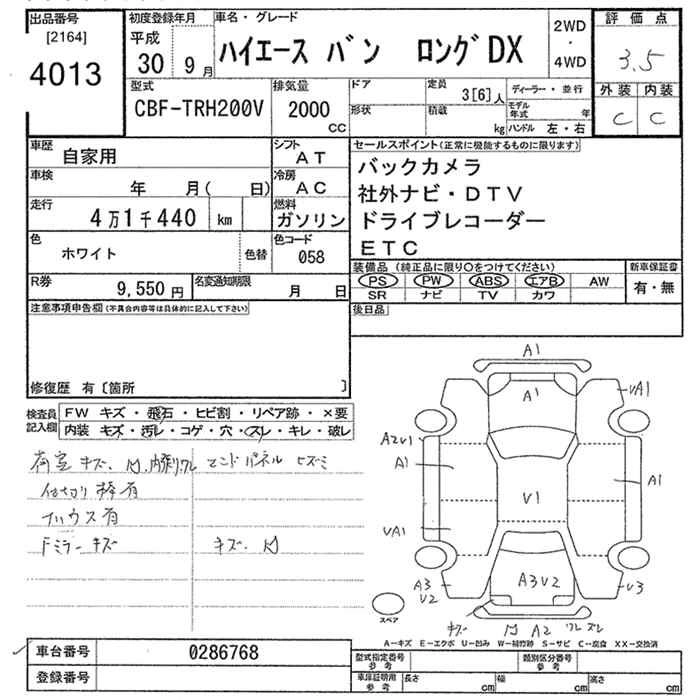 出品番号
[2164]
4013
初度登録年月
平成
30 9月
車名・グレード
ハイエース バン ロングDX
2WD
・
4WD
評価点
3.5
外装 内装
C C
型式
CBF-TRH200V
排気量
2000
CC
ドア
形状
定員
3[6]人
積載
kg
ディーラー・並行
モデル年式 年
ハンドル 左・右
車歴
自家用
シフト
AT
車検
年 月( 日)
冷房
AC
走行
4万1千440 km
燃料
ガソリン
色
ホワイト
色替
色コード
058
R券
9,550円
名変通知期限
月 日
セールスポイント(正常に機能するものに限ります)
バックカメラ
社外ナビ・DTV
ドライブレコーダー
ETC
装備品 (純正品に限り○をつけてください)
PS PW ABS エアB AW
SR ナビ TV カワ
新車保証書
有・無
後日品
注意事項申告欄(不具合内容等は具体的に記入して下さい)
修復歴 有〔箇所 〕
検査員
記入欄
FW キズ・飛石・ヒビ割・リペア跡・×要
内装 キズ・汚レ・コゲ・穴・スレ・キレ・破レ
荷室 キズ、凹、内張りワレ エンドパネル ヒズミ
仕切り棒有
Fミラーキズ
キズ、凹
A1
A1
VA1
A2V1
A1
A1
V1
VA1
A3
V2
A3V2
V3
キズ 凹 A2 ワレ ズレ
スペア
A-キズ E-エクボ U-凹み W-補修跡 S-サビ C-腐食 XX-交換済
車台番号
0286768
登録番号
型式指定番号
参考
類別区分番号
参考
車庫証明用
参考
長さ cm
幅 cm
高さ cm